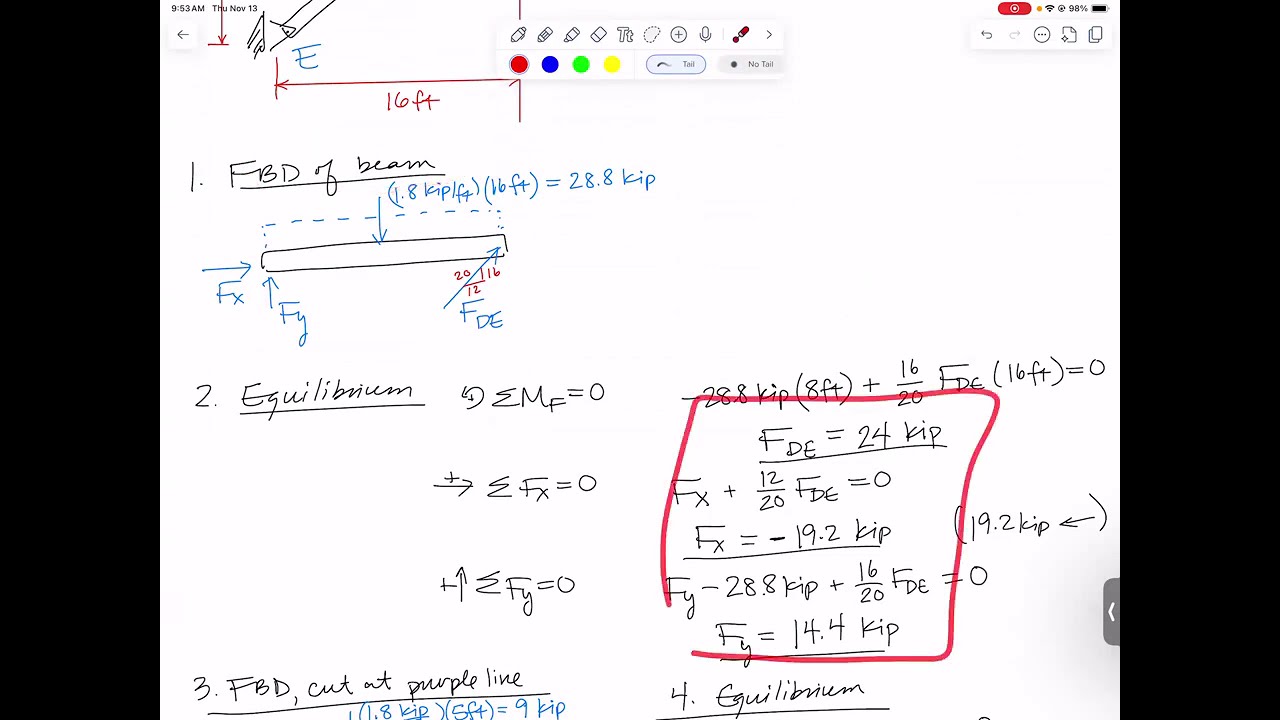 9:53 AM Thu Nov 13
98%
E
Tail
No Tail
16ft
1. FBD of beam
(1.8 kip/ft)(16ft) = 28.8 kip
20 16
12
Fx
Fy
FDE
2. Equilibrium
↺ ΣMF=0
-28.8 kip(8ft) + 16/20 FDE (16ft)=0
FDE = 24 kip
+→ ΣFx=0
Fx + 12/20 FDE =0
Fx = -19.2 kip
(19.2 kip ←)
+↑ ΣFy=0
Fy - 28.8 kip + 16/20 FDE = 0
Fy = 14.4 kip
3. FBD, cut at purple line
(1.8 kip )(5ft)= 9 kip
4. Equilibrium